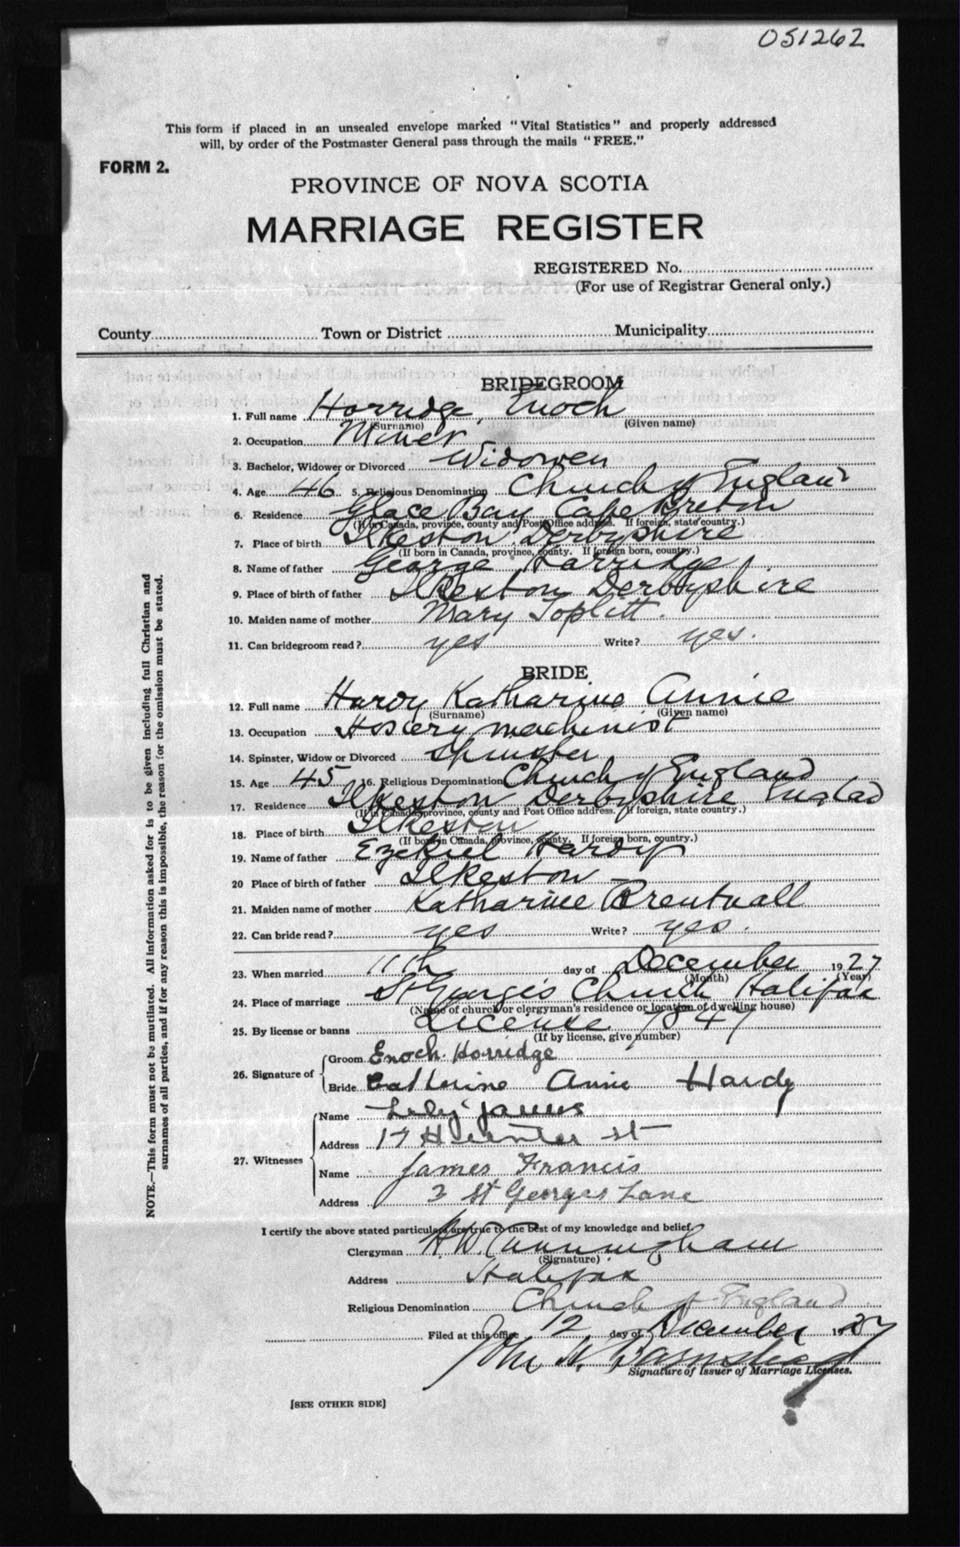 051262
This form if placed in an unsealed envelope marked "Vital Statistics" and properly addressed
will, by order of the Postmaster General pass through the mails "FREE."
FORM 2.
PROVINCE OF NOVA SCOTIA
MARRIAGE REGISTER
REGISTERED No.
(For use of Registrar General only.)
County Town or District Municipality
BRIDEGROOM
1. Full name Horridge Enoch
(Surname) (Given name)
2. Occupation Miner
3. Bachelor, Widower or Divorced Widower
4. Age 46 5. Religious Denomination Church of England
6. Residence Glace Bay Cape Breton
(If in Canada, province, county and Post Office address. If foreign, state country.)
7. Place of birth Ilkeston Derbyshire
(If born in Canada, province, county. If foreign born, country.)
8. Name of father George Harridge
9. Place of birth of father Ilkeston Derbyshire
10. Maiden name of mother Mary Toplitt.
11. Can bridegroom read? yes Write? yes.
BRIDE
12. Full name Hardy Katharine Annie
(Surname) (Given name)
13. Occupation Hosiery machinist
14. Spinster, Widow or Divorced Spinster
15. Age 45 16. Religious Denomination Church of England
17. Residence Ilkeston Derbyshire Englad
(If in Canada province, county and Post Office address. If foreign, state country.)
18. Place of birth Ilkeston
(If born in Canada, province, county. If foreign born, country.)
19. Name of father Ezekiel Hardy
20 Place of birth of father Ilkeston
21. Maiden name of mother Katharine Brentnall
22. Can bride read? yes Write? yes.
23. When married 11th day of December 1927
(Month) (Year)
24. Place of marriage St George's Church Halifax
(Name of church or clergyman's residence or location of dwelling house)
25. By license or banns License 7847
(If by license, give number)
26. Signature of
Groom Enoch Horridge
Bride Catherine Annie Hardy
27. Witnesses
Name James
Address 17 St
Name James Francis
Address 3 St Georges Lane
I certify the above stated particulars are true to the best of my knowledge and belief
Clergyman H. W. Cunningham
(Signature)
Address Halifax
Religious Denomination Church of England
Filed at this office 12 day of December 1927
John H. Barnstead
Signature of Issuer of Marriage Licenses.
[SEE OTHER SIDE]
NOTE.—This form must not be mutilated. All information asked for is to be given including full Christian and
surnames of all parties, and if for any reason this is impossible, the reason for the omission must be stated.